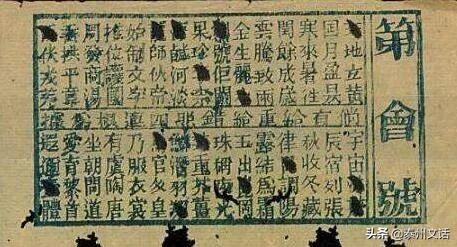 第會號
地黃宇宙
日月盈昃辰宿列張
寒來暑往秋收冬藏
閏餘成歲律陽
雲騰致雨露結為霜
金生麗玉出岡
號巨闕珠稱光
果珍重芥薑
河淡羽翔
師火帝官人皇
始制文字乃服衣裳
推位讓國有虞陶唐
周發商湯坐朝問道
垂拱平章愛育黎首
伏戎羌遐邇體
头条 @泰州文话